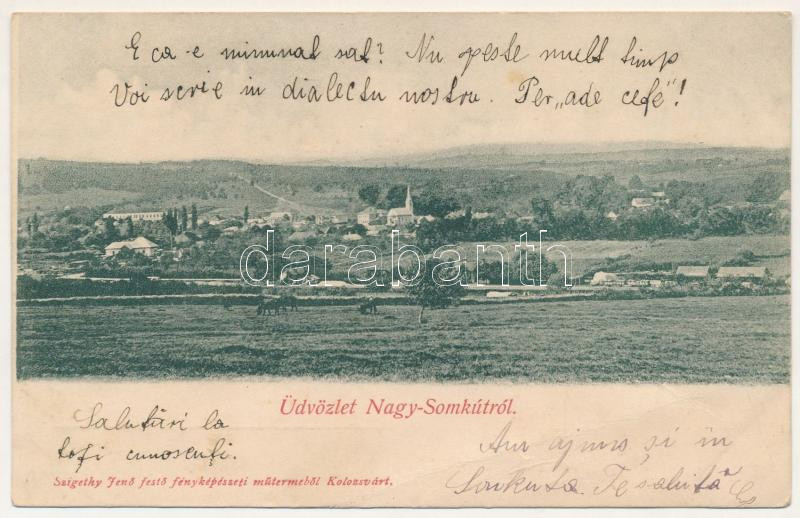 E ca-e minunat sat? Nu peste mult timp
Voi scrie in dialectu nostru. Per „ade cefé"!
darabanth
Üdvözlet Nagy-Somkútról.
Salutări la
toți cunoscuți.
Am ajuns și in
Somkuta. Te salută
Szigethy Jenő festő fényképészeti műterméből Kolozsvárt.